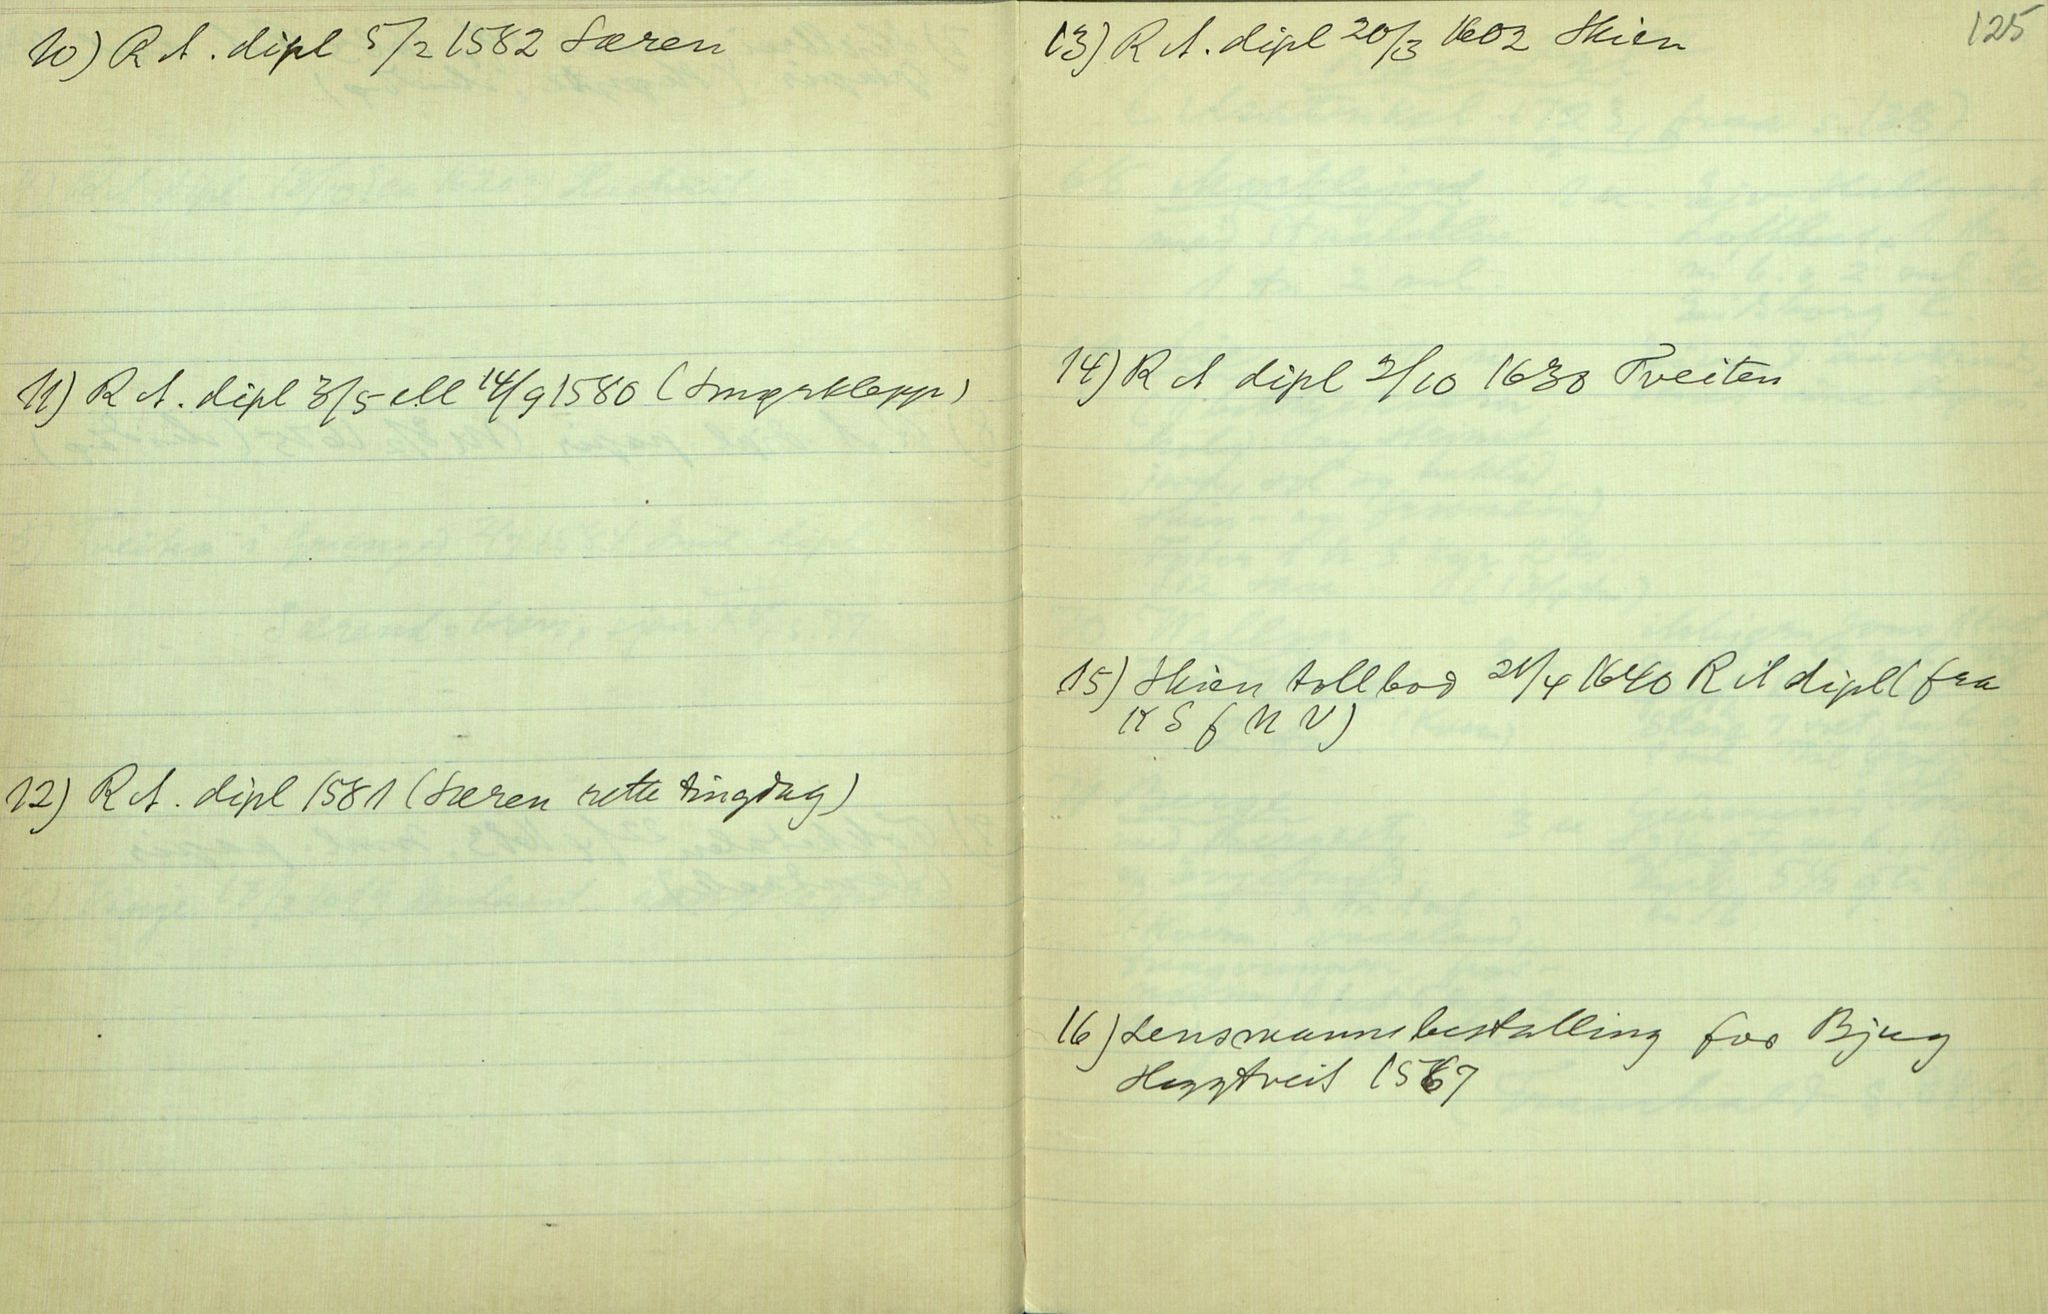 10) R A. dipl 5/2 1582 Særen
11) R A. dipl 3/5 ell 14/9 1580 (Smørklepp)
12) R A. dipl 1581 (Særen rette tingdag)
125
13) R A. dipl 20/3 1602 Skien
14) R A dipl 2/10 1630 Tveiten
15) Skien tollbod 21/4 1640 R A dipl (fra
K S f N V)
16) Lensmannsbestalling for Bjug
Heggtveit 1567